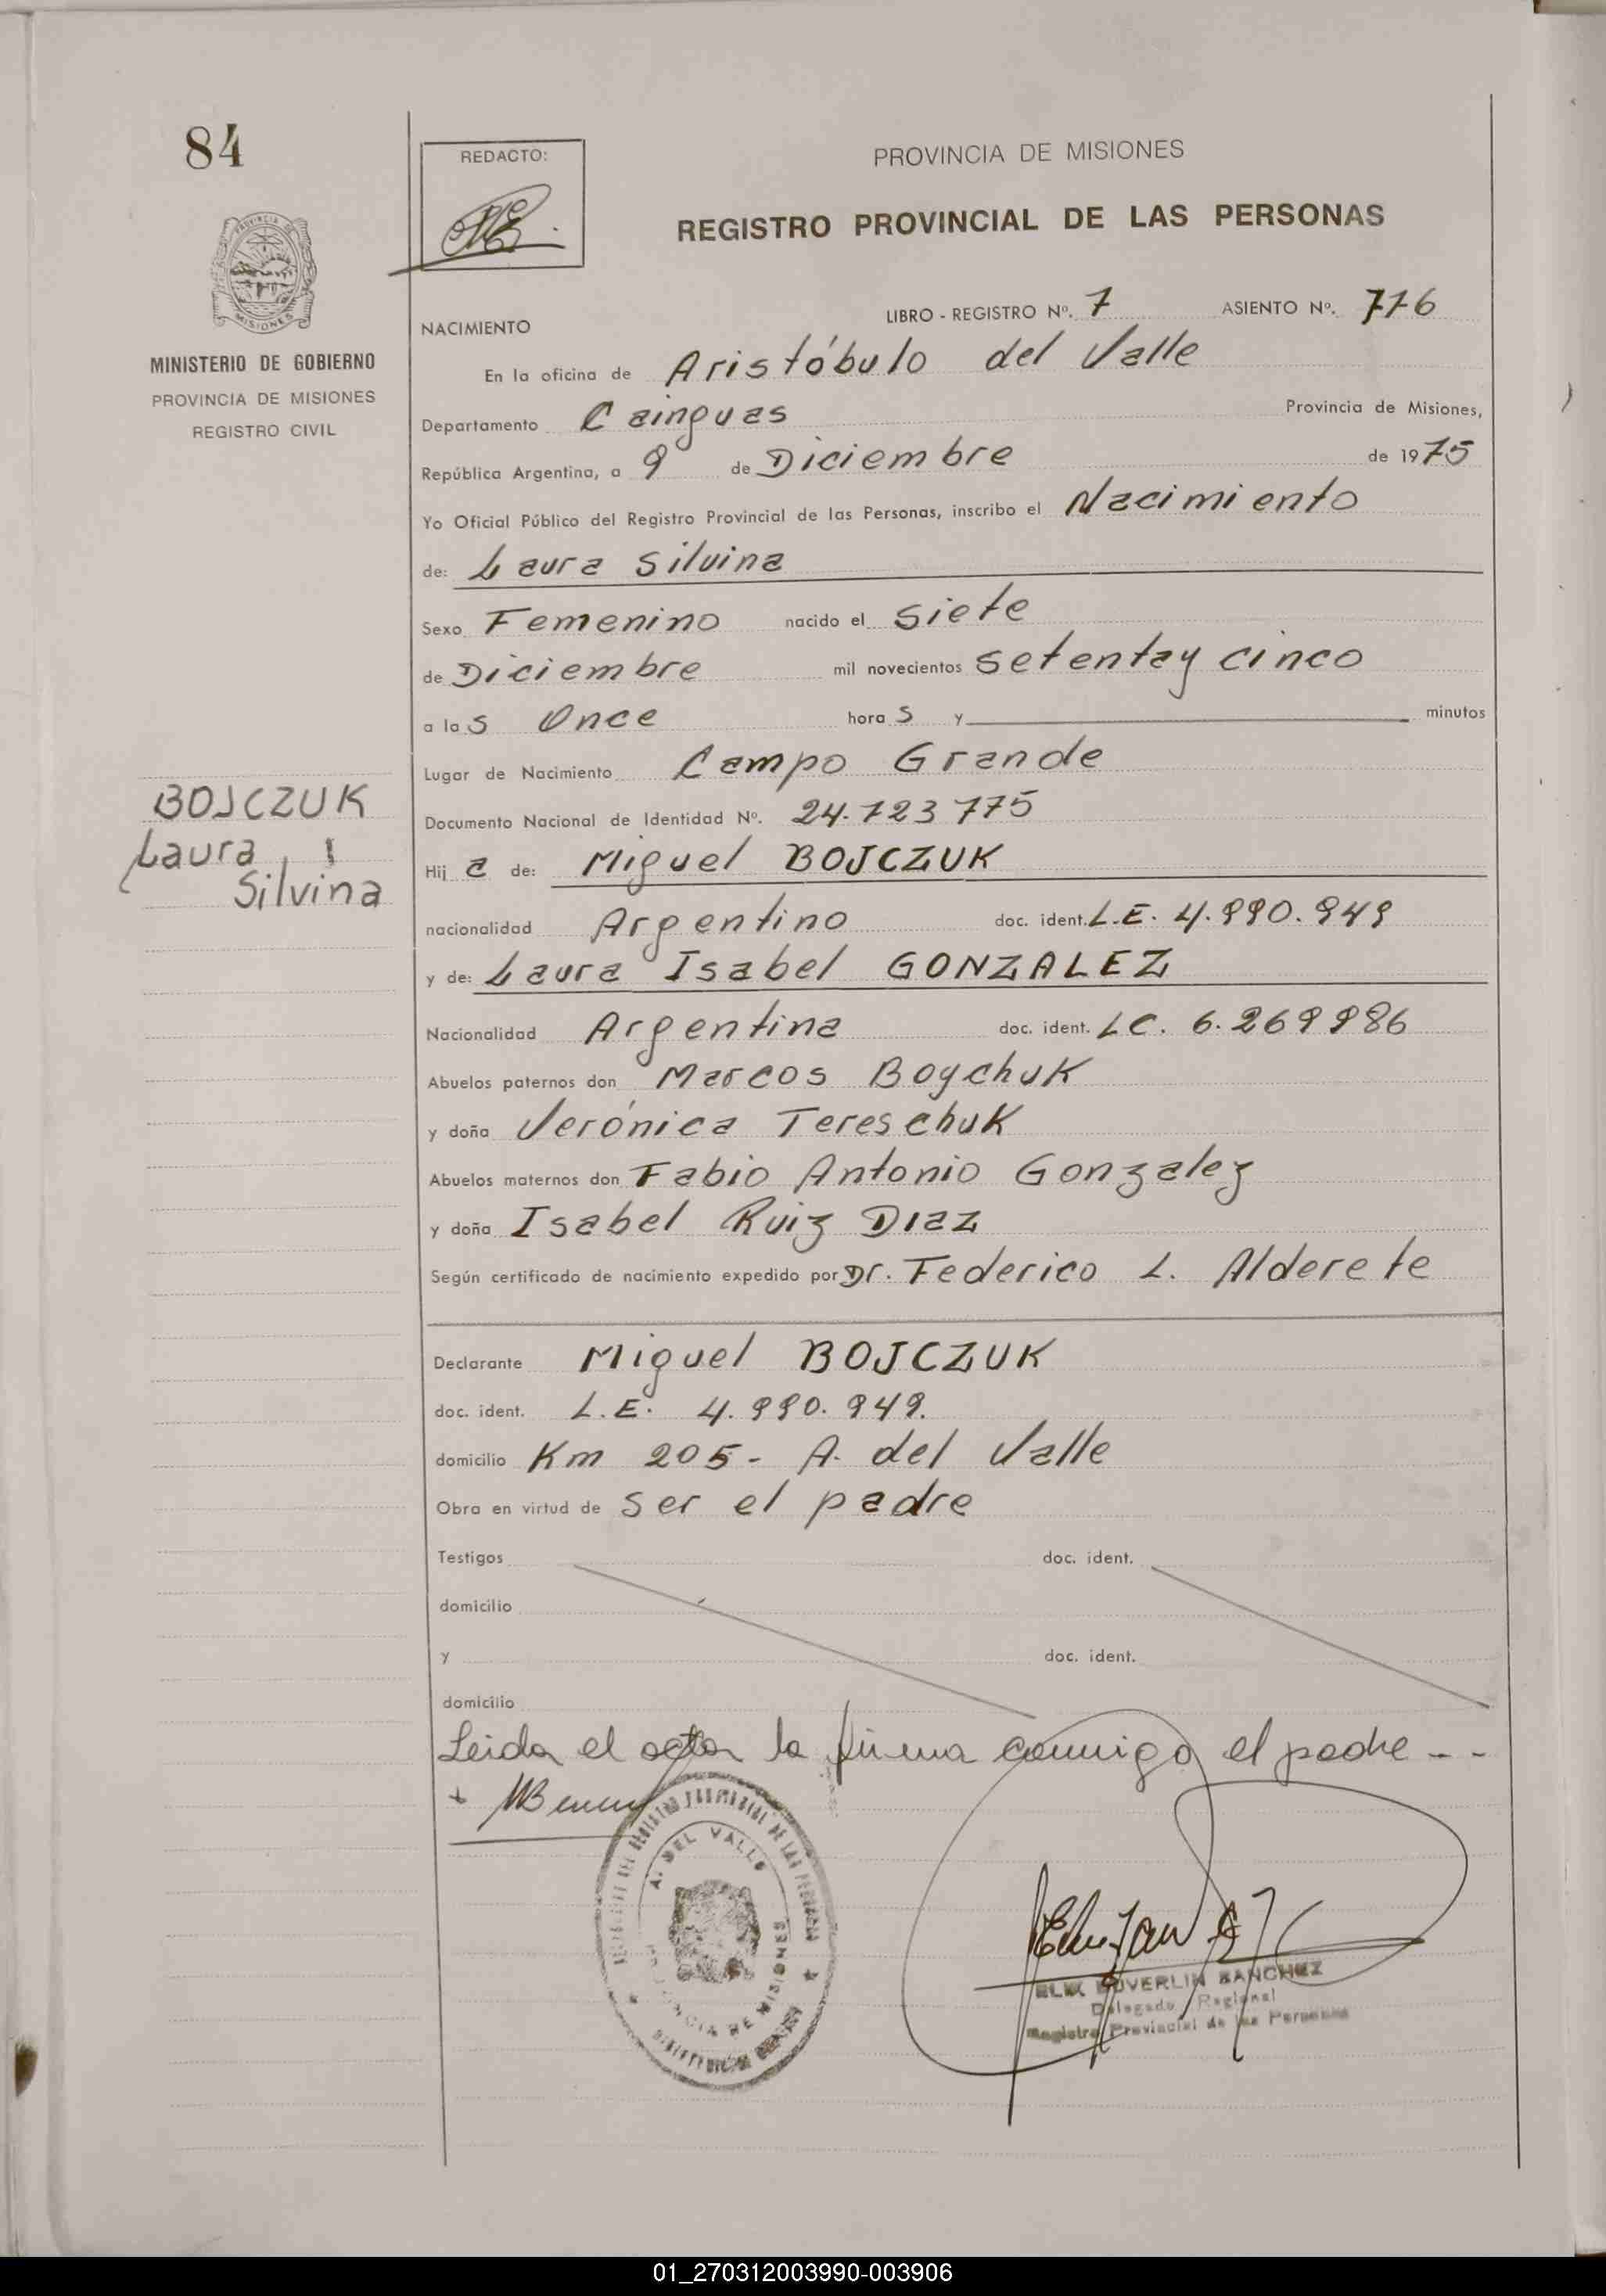 84
REDACTO:
PROVINCIA DE MISIONES
REGISTRO PROVINCIAL DE LAS PERSONAS
MISIONES
MINISTERIO DE GOBIERNO
PROVINCIA DE MISIONES
REGISTRO CIVIL
LIBRO - REGISTRO Nº. 7 ASIENTO Nº. 776
NACIMIENTO
En la oficina de Aristóbulo del Valle
Departamento Cainguas Provincia de Misiones,
República Argentina, a 9 de Diciembre de 1975
Yo Oficial Público del Registro Provincial de las Personas, inscribo el Nacimiento
de: Laura Silvina
Sexo Femenino nacido el siete
de Diciembre mil novecientos setenta y cinco
a las Once horas y minutos
Lugar de Nacimiento Campo Grande
BOJCZUK
Laura
Silvina
Documento Nacional de Identidad Nº. 24.723775
Hija de: Miguel BOJCZUK
nacionalidad Argentino doc. ident. L.E. 4.990.949
y de: Laura Isabel GONZALEZ
Nacionalidad Argentina doc. ident. LC. 6.269986
Abuelos paternos don Marcos Boychuk
y doña Verónica Tereschuk
Abuelos maternos don Fabio Antonio Gonzalez
y doña Isabel Ruiz Diaz
Según certificado de nacimiento expedido por Dr. Federico L. Alderete
Declarante Miguel BOJCZUK
doc. ident. L.E. 4.990.949.
domicilio Km 205- A. del Valle
Obra en virtud de ser el padre
Testigos doc. ident.
domicilio
y doc. ident.
domicilio
Leida el acta la firma conmigo el padre - -
A. DEL VALLE
PROVINCIA DE MISIONES
SANCHEZ
Delegado Regional
Registro Provincial de las Personas
01_270312003990-003906